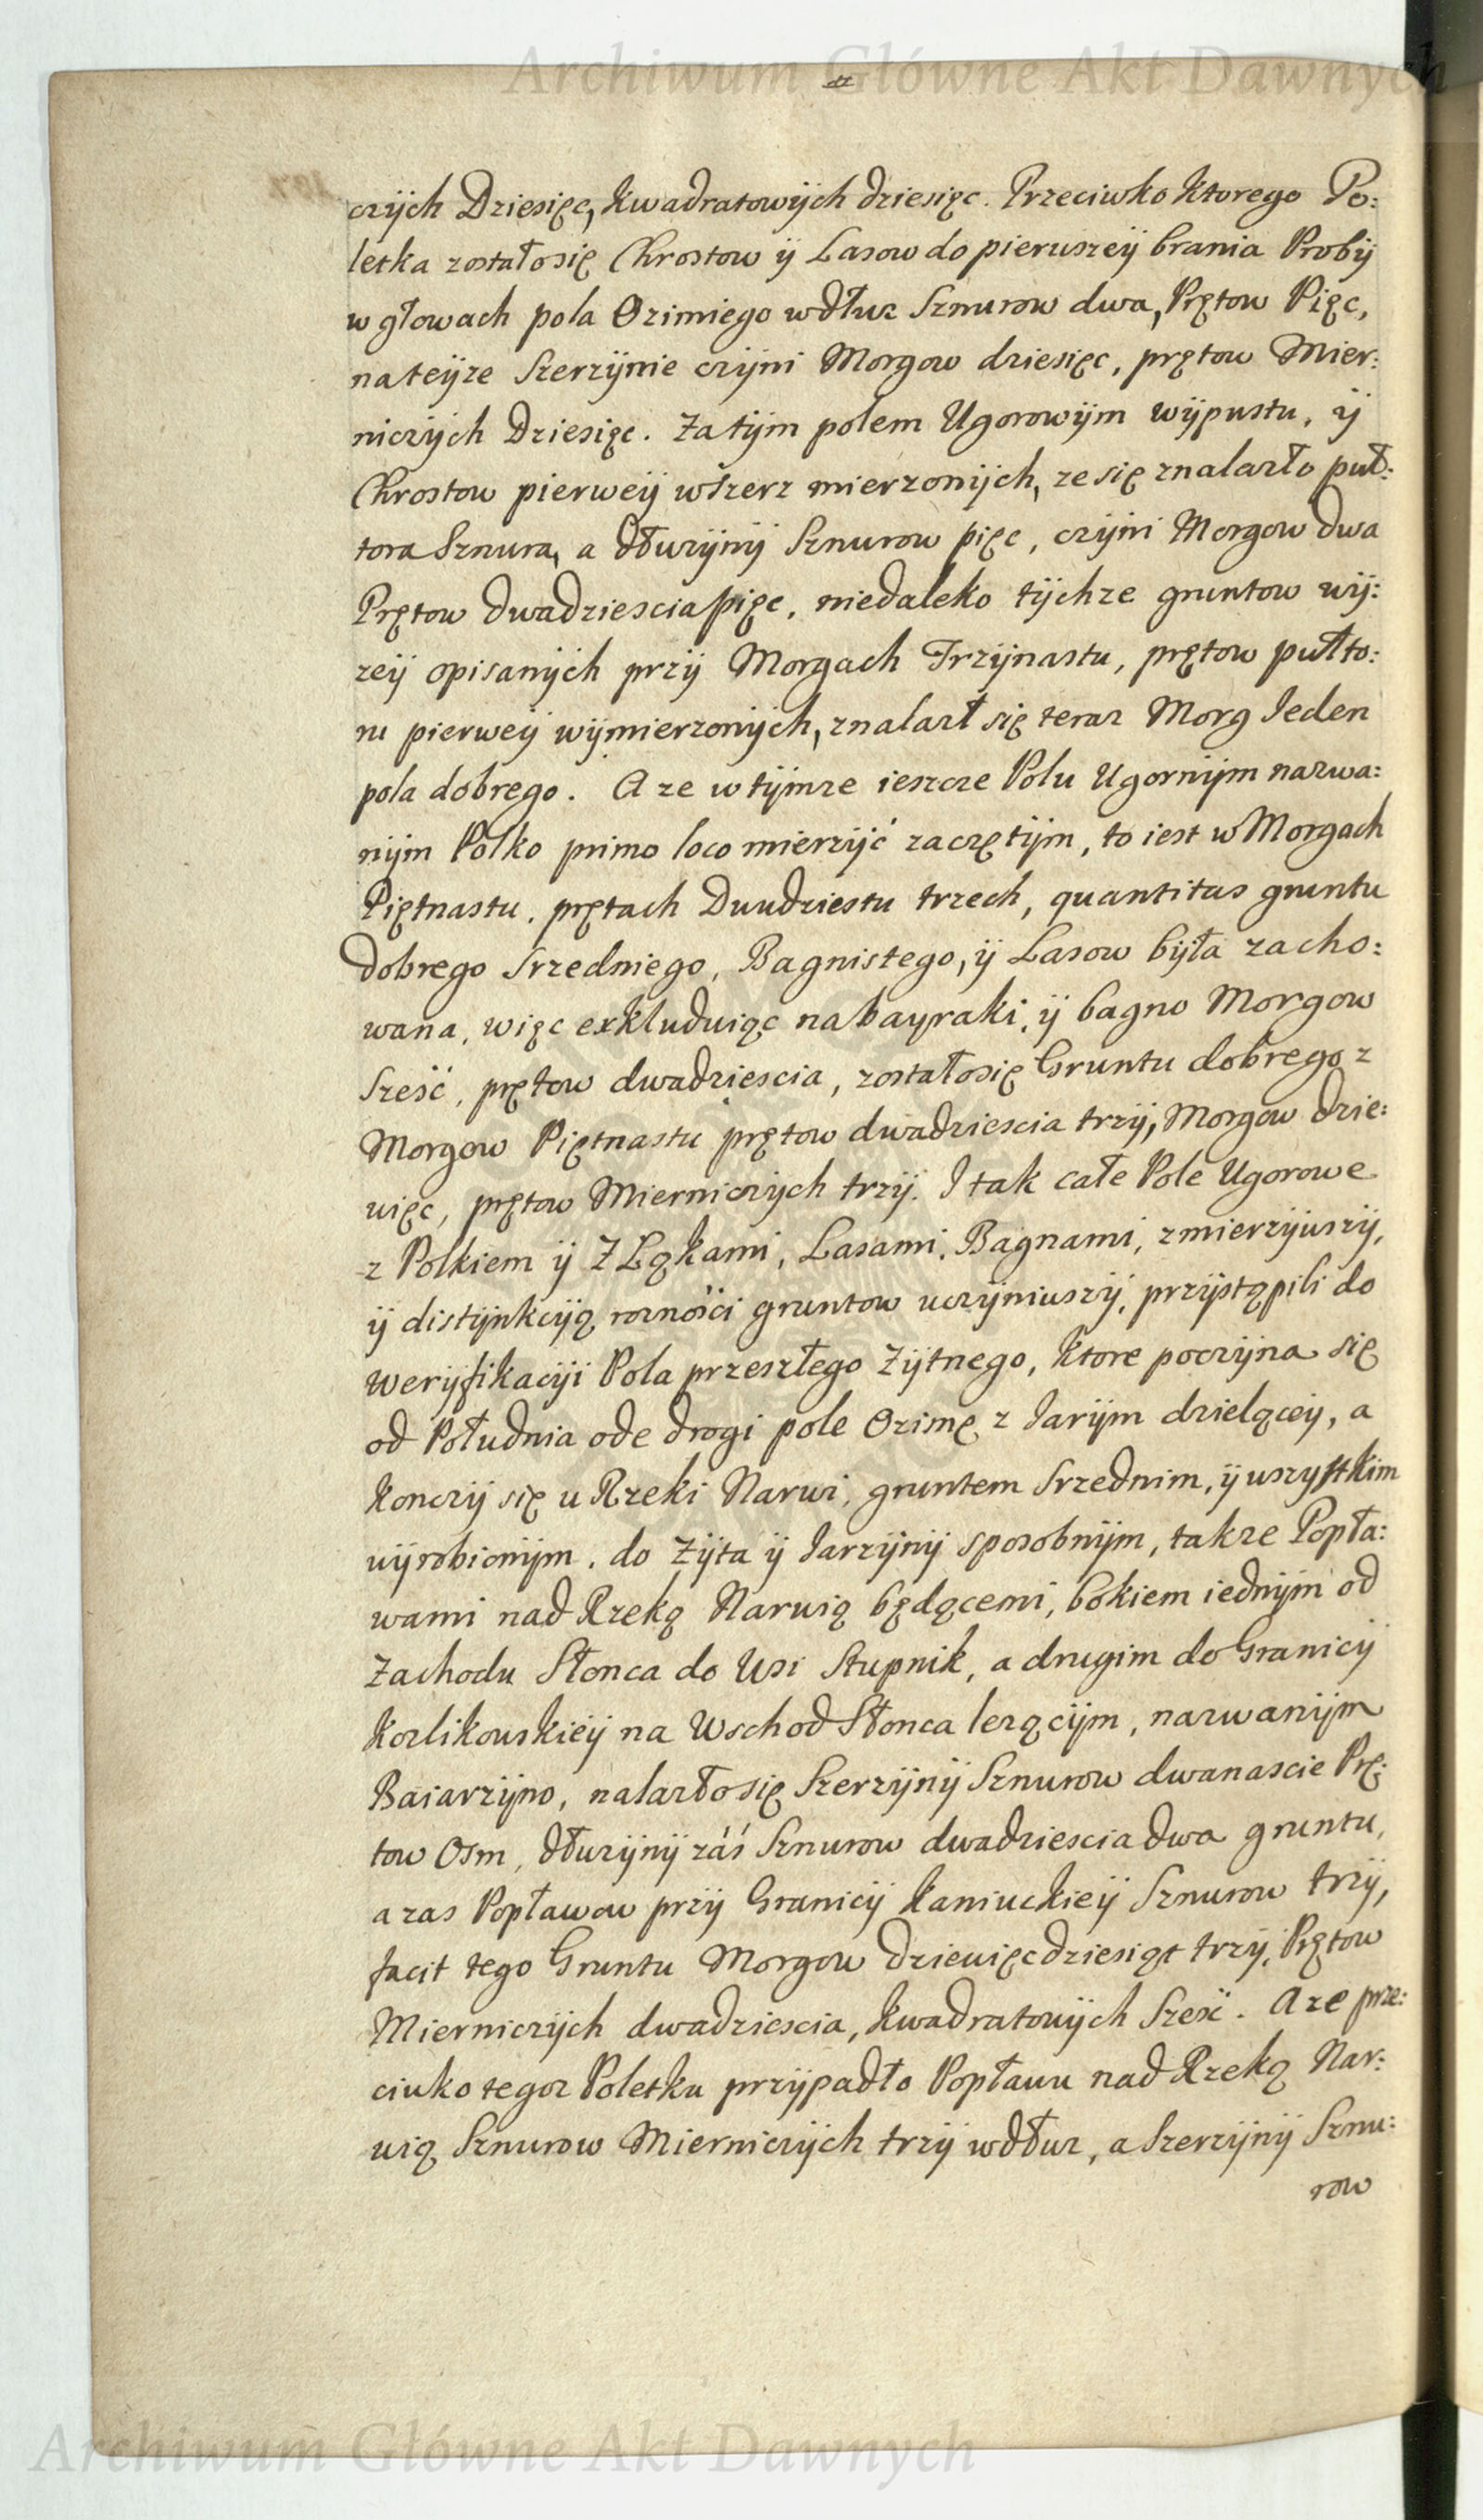 Archiwum Główne Akt Dawnych
czÿch Dziesięc, kwadratowÿch dziesięc. Przeciwko ktorego Po:
letka zostałosię Chrostow ÿ Lasow do pierwszeÿ brania Probÿ
w głowach pola Ozimiego wdłuz Sznurow dwa, Prętow Pięc,
nateÿze Szerzÿnie czÿni Morgow dziesięc, prętow Mier:
niczÿch Dziesięc. Za tÿm polem Ugorowÿm wÿpustu, ÿ
Chrostow pierweÿ wszerz mierzonÿch, ze się znalazło puł:
tora Sznura, a dłuzÿnÿ Sznurow pięc, czÿni Morgow dwa
Prętow dwadziescia pięc, niedaleko tÿchze gruntow wÿ:
zeÿ opisanÿch przÿ Morgach Trzÿnastu, prętow pułto:
ru pierweÿ wÿmierzonÿch, znalazł się teraz Morg Ieden
pola dobrego. A ze w tÿmze ieszcze Polu Ugornÿm nazwa:
nÿm Polko primo loco mierzÿć zaczętÿm, to iest w Morgach
Piętnastu, prętach Dwudziestu trzech, quantitas gruntu
dobrego Srzedniego, Bagnistego, ÿ Lasow bÿła zacho:
wana, więc exkluduiąc na bayraki, ÿ bagno Morgow
Sześć, prętow dwadziescia, zostałosię Gruntu dobrego z
Morgow Piętnastu prętow dwadziescia trzÿ, Morgow dzie:
więc, prętow Mierniczÿch trzÿ. I tak całe Pole Ugorowe
z Polkiem ÿ Z Ląkami, Lasami, Bagnami, zmierzÿwszÿ,
ÿ distÿnkcÿą roznośći gruntow uczÿniwszÿ, przÿstąpili do
werÿfikacÿi Pola przeszłego Zÿtnego, ktore poczÿna się
od Południa ode drogi pole Ozimę z Iarÿm dzielącey, a
konczÿ się u Rzeki Narwi, gruntem Srzednim, ÿ wszystkim
wÿrobionÿm, do Zÿta ÿ Iarzÿnÿ sposobnÿm, takze Popła:
wami nad Rzeką Narwią będącemi, bokiem iednÿm od
Zachodu Słonca do Wsi Stupnik, a drugim do Granicÿ
Kozlikowskieÿ na Wschod Słonca lezącÿm, nazwanÿm
Baiarzÿno, nalazłosię Szerzÿnÿ Sznurow dwanascie Prę:
tow Osm, dłuzÿnÿ záś Sznurow dwadziescia dwa gruntu,
a zas Popławow przÿ Granicÿ Kaniuckieÿ Sznurow trzÿ,
facit tego Gruntu Morgow dziewięcdziesiąt trzÿ, Prętow
Mierniczÿch dwadziescia, kwadratowÿch Sześć. A ze prze:
ciwko tegoz Poletku przÿpadło Popławu nad Rzeką Nar:
wią Sznurow Mierniczÿch trzÿ wdłuz, a Szerzÿnÿ Sznu:
row
Archiwum Główne Akt Dawnych